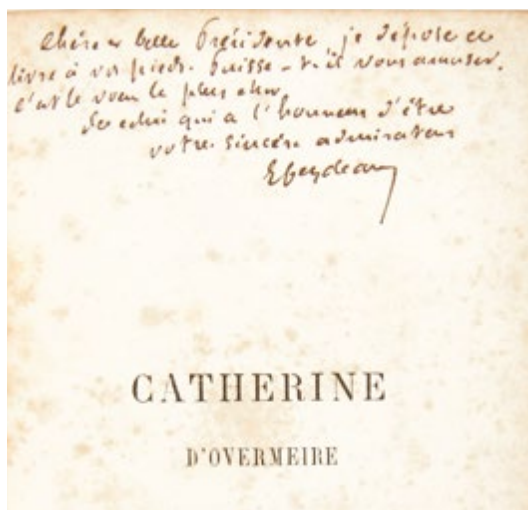 Chère et belle Présidente, je dépose ce
livre à vos pieds. Puisse-t-il vous amuser.
c'est le vœu le plus cher
de celui qui a l'honneur d'être
votre sincère admirateur
EFeydeau
CATHERINE
D'OVERMEIRE